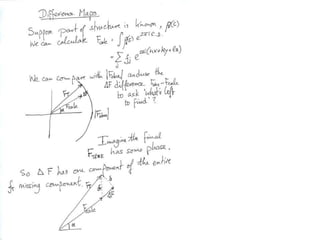 Difference Maps
Suppose part of structure is known, ρ(r)
We can calculate Fcalc = ∫ρ(r) e^2πi r.s
= Σ fj e^2πi(hx+ky+lz)
We can compare with |Fobs| and use the
ΔF difference Fobs-Fcalc
to ask "what's left
to find"?
Fcalc
|Fobs|
Imagine the final
FTRUE has some phase.
So ΔF has one component of the entire
missing component.
Fcalc